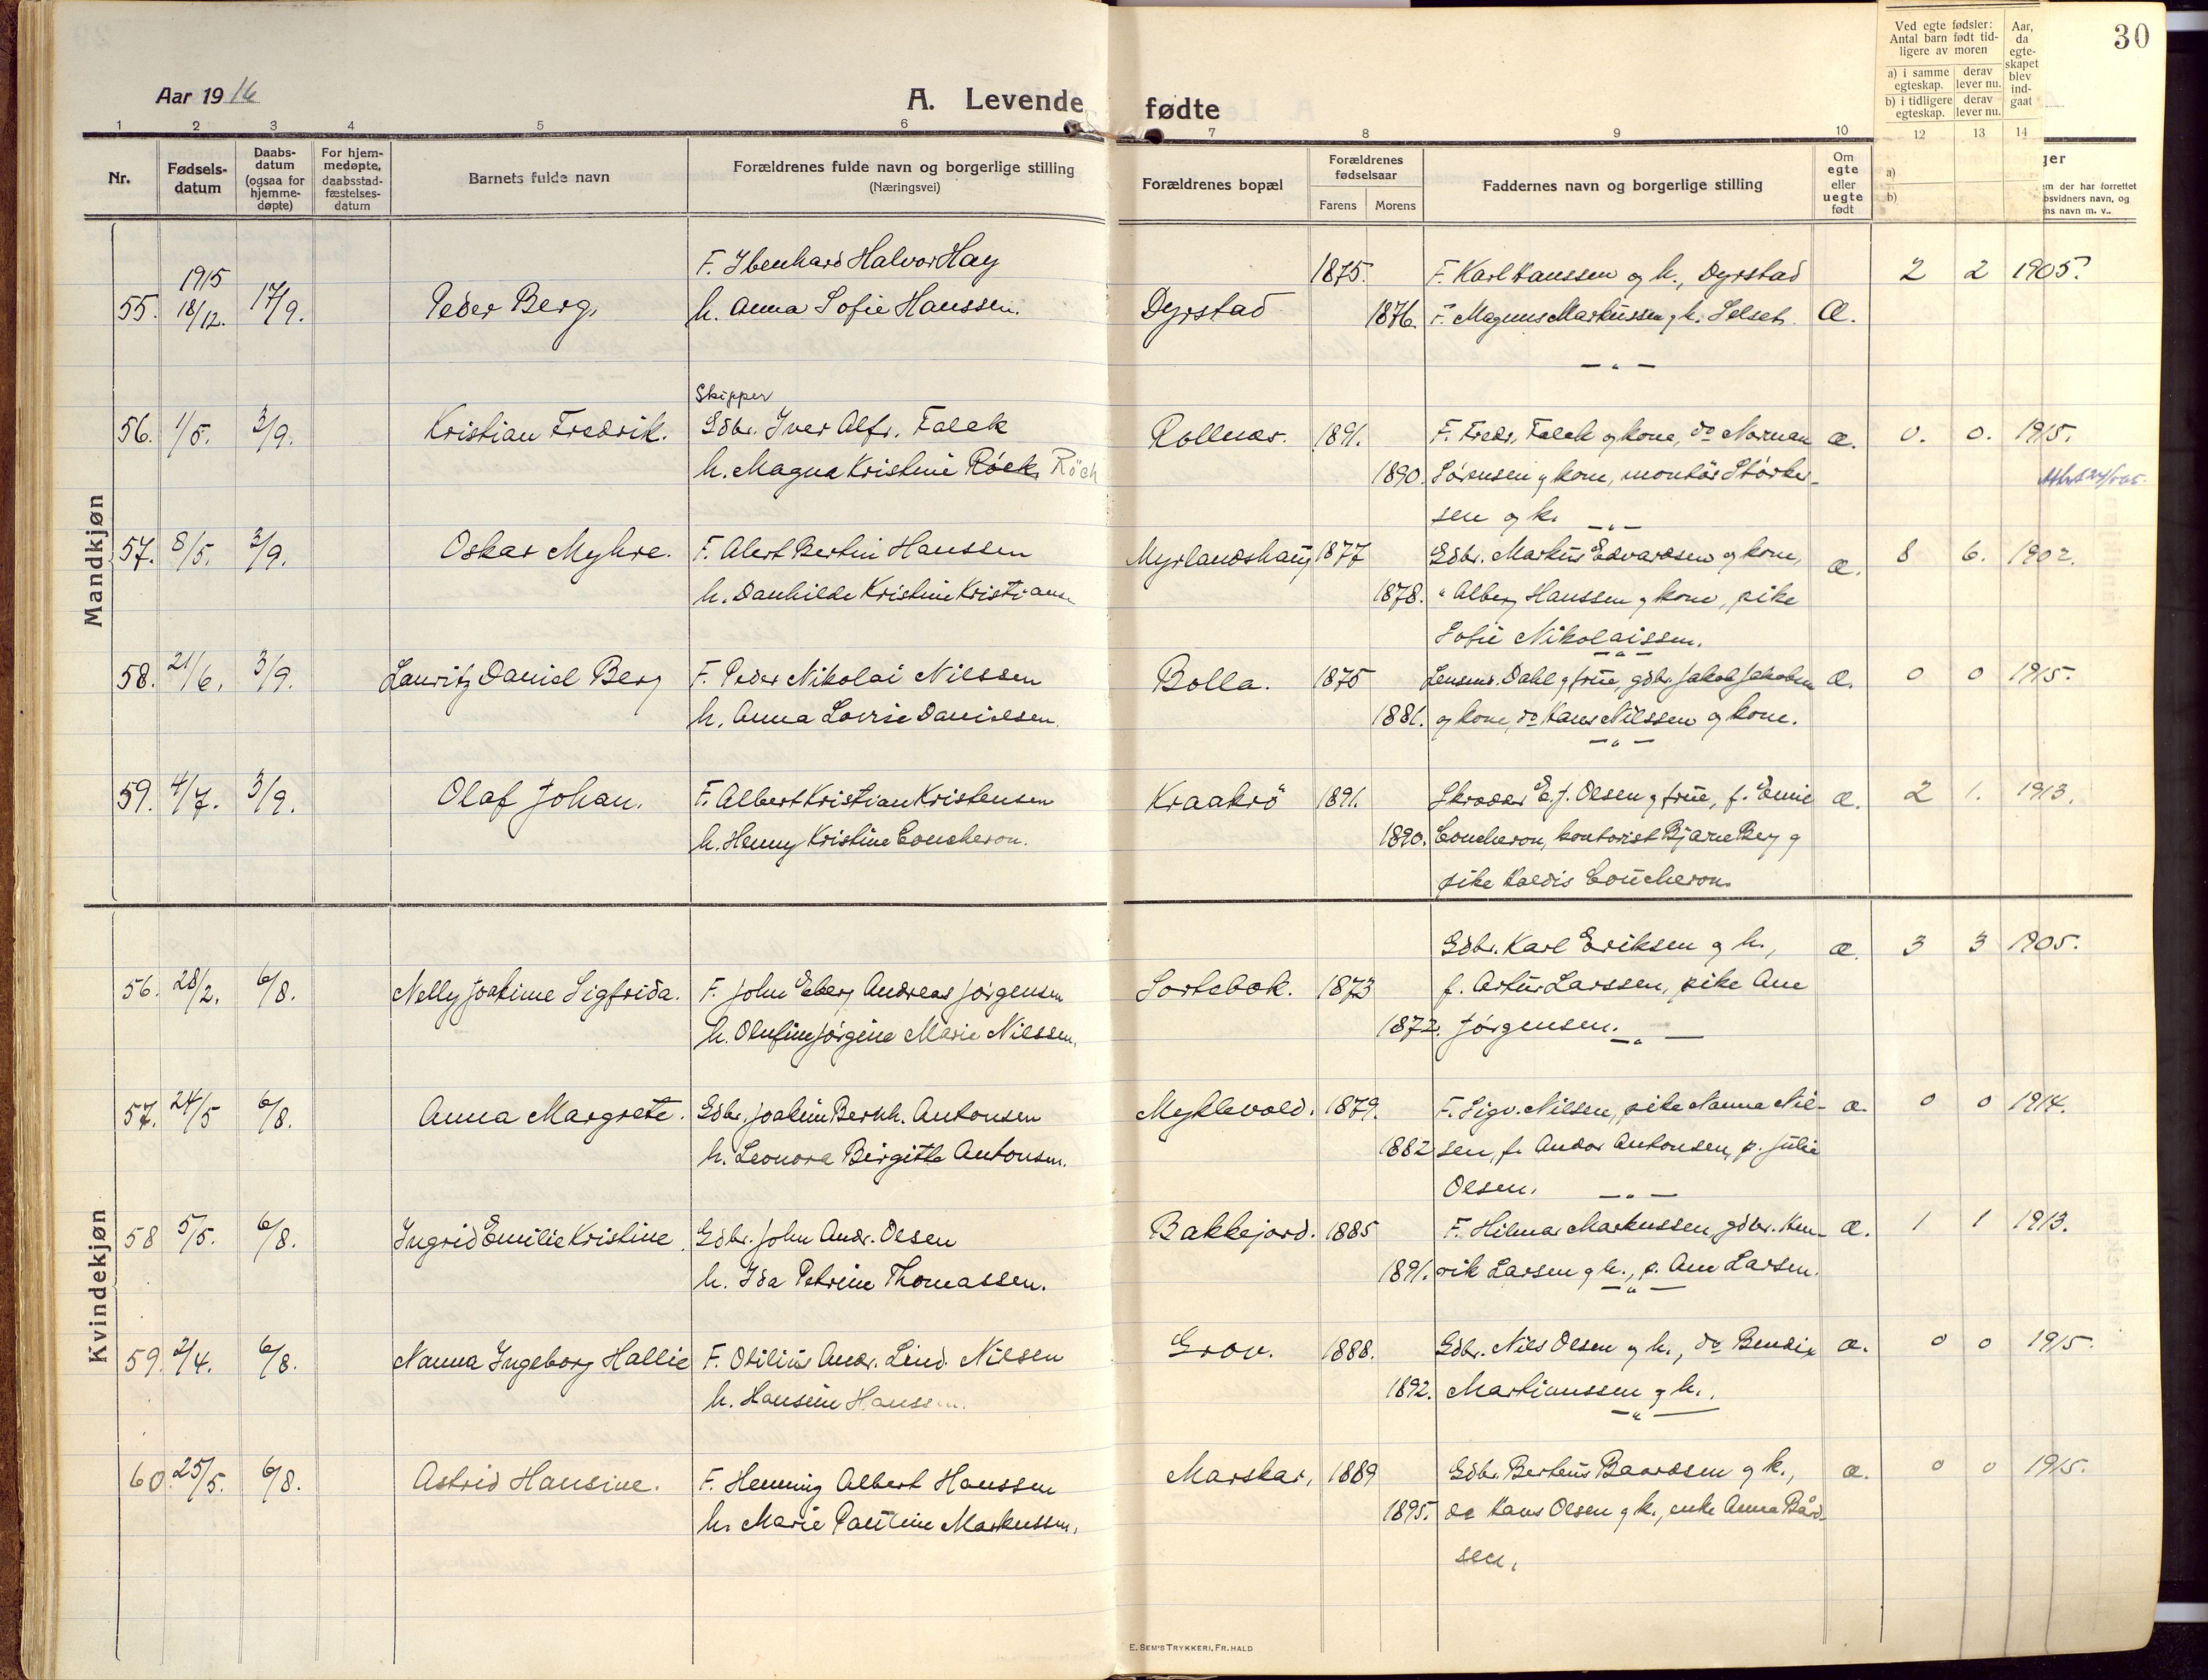 Aar 1916
A. Levende fødte
30
1 2 3 4 5 6 7 8 9 10 12 13 14
Nr.
Fødsels-
datum
Daabs-
datum
(ogsaa for
hjemme-
døpte)
For hjem-
medøpte,
daabsstad-
fæstelses-
datum
Barnets fulde navn
Forældrenes fulde navn og borgerlige stilling
(Næringsvei)
Forældrenes bopæl
Forældrenes
fødselsaar
Farens Morens
Faddernes navn og borgerlige stilling
Om
egte
eller
uegte
født
Ved egte fødsler:
Antal barn født tid-
ligere av moren
a) i samme egteskap. derav lever nu.
b) i tidligere egteskap. derav lever nu.
Aar,
da
egte-
skapet
blev
ind-
gaat
a)
b)
ger
em der har forrettet
bsvidners navn, og
ns navn m. v..
Mandkjøn
F. Ibenhard Halvor Hay 1875. F. Karl Hanssen og h., Dyrstad 2 2 1905.
55. 1915 18/12. 17/9. Peder Berg. h. Anna Sofie Hanssen. Dyrstad 1876. F. Magnus Markussen og h. Selset. Æ.
Skipper
56. 1/5. 3/9. Kristian Fredrik. Gdbr. Iver Alfr. Falck Rollnes. 1891. F. Fredr. Falck og kone, do Norman æ. 0. 0. 1915.
h. Magna Kristine Röck Röch 1890. Sörensen og kone, montör Störker-
sen og k.
57. 8/5. 3/9. Oskar Myhre. F. Alert Bertin Hanssen Myrlandshaug 1877 Gdbr. Markus Edvardsen og kone, æ. 8 6. 1902.
h. Danhilde Kristine Kristianse 1878. " Alberg Hanssen og kone, pike
Sofie Nikolaissen.
58. 21/6. 3/9. Lauritz Daniel Berg F. Peder Nikolai Nilssen Bolla. 1875 Lensm. Dahl og frue, gdbr. Jakob Jakobsen æ. 0 0 1915.
h. Anna Lovise Danielsen. 1881. og kone, do Hans Nilssen og kone.
59. 4/7. 3/9. Olaf Johan. F. Albert Kristian Kristensen Kraakrö 1891. Skræder E. J. Olsen og frue, f. Emil æ. 2 1. 1913.
h. Henny Kristine Coucheron. 1890. Coucheron, kontorist Bjarne Berg og
pike Haldis Coucheron.
Kvindekjøn
Gdbr. Karl Eriksen og h., æ. 3 3 1905.
56. 28/2. 6/8. Nelly Joakime Sigfrida. F. John Eberg Andreas Jörgensen Sortebak. 1873 f. Artur Larssen, pike Ane
h. Olufine Jörgine Marie Nilssen. 1872. Jörgensen.
57. 24/5 6/8. Anna Margrete. Gdbr. Joakim Bernh. Antonsen Myklevold. 1879. F. Sigv. Nilsen, pike Nanna Nil- æ. 0 0 1914.
h. Leonora Birgitte Antonsen. 1882 sen, f. Andor Antonsen, p. Julie
Olsen.
58 5/5. 6/8. Ingrid Emilie Kristine. Gdbr. John Andr. Olsen Bakkejord. 1885 F. Hilmar Markussen, gdbr. Hen- æ. 1 1 1913.
h. Ida Petrine Thomassen. 1891. rik Larsen og h., p. Ane Larsen.
59. 2/4. 6/8. Nanna Ingeborg Hallie F. Otilius Andr. Lind Nilsen Grov. 1888. Gdbr. Nils Olsen og h., do Bendix æ. 0 0 1915.
h. Hansine Hanssen. 1892. Martinussen og h.
60. 25/5. 6/8. Astrid Hansine. F. Henning Albert Hanssen Marskar, 1889 Gdbr. Berteus Baardsen og k., æ. 0 0 1915.
h. Marie Pauline Markussen. 1895. do Hans Olsen og k., enke Anna Bård-
sen.
E. SEM'S TRYKKERI, FR.HALD